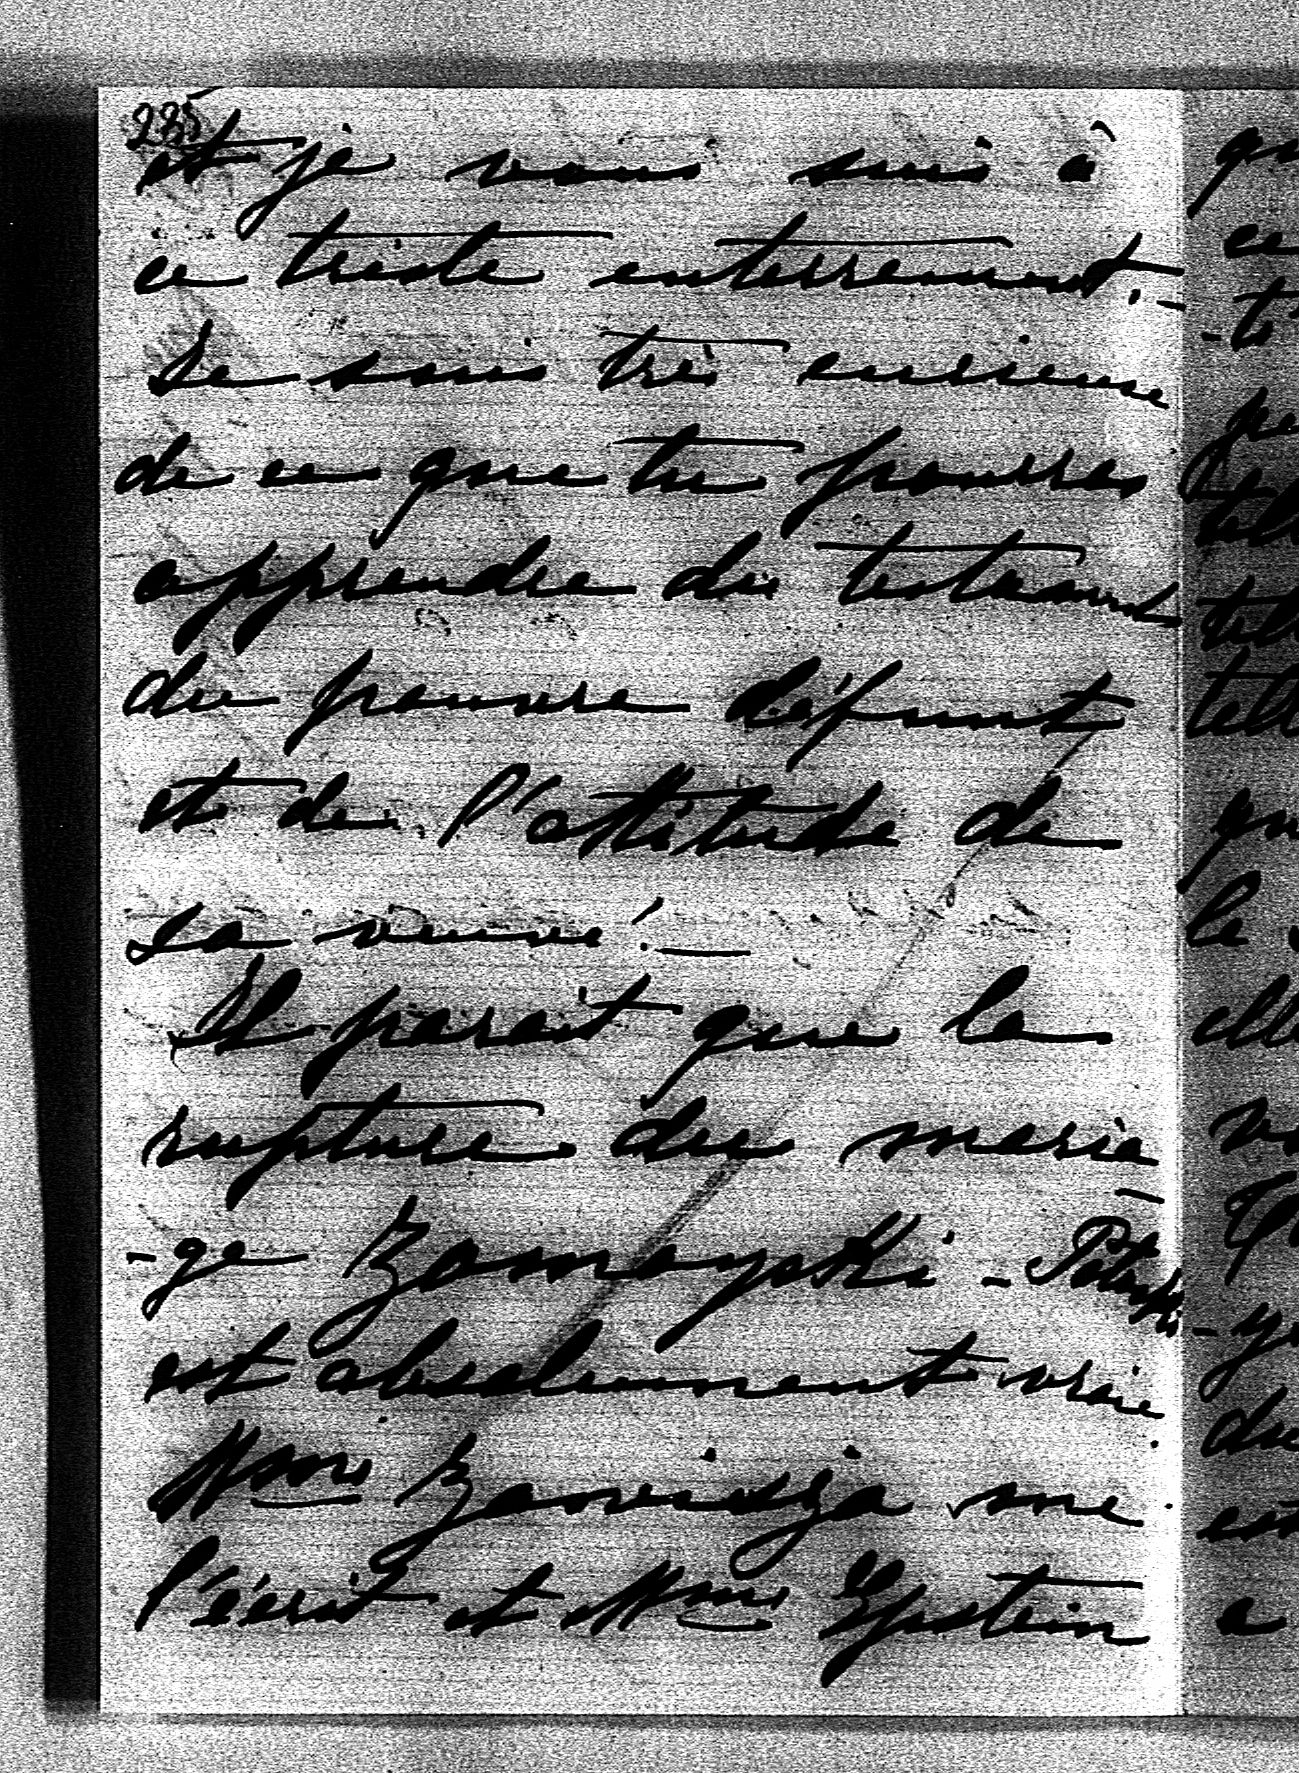 235
et je vous suis à
ce triste enterrement. -
Je suis très curieuse
de ce que tu pourras
apprendre du testament
du pauvre défunt
et de l'attitude de
sa veuve! —
Il parait que la
rupture du maria
-ge Zamoyski - Potocki
est absolument vraie.
Mme Zawidzja me
l'écrit et Mme Epstein